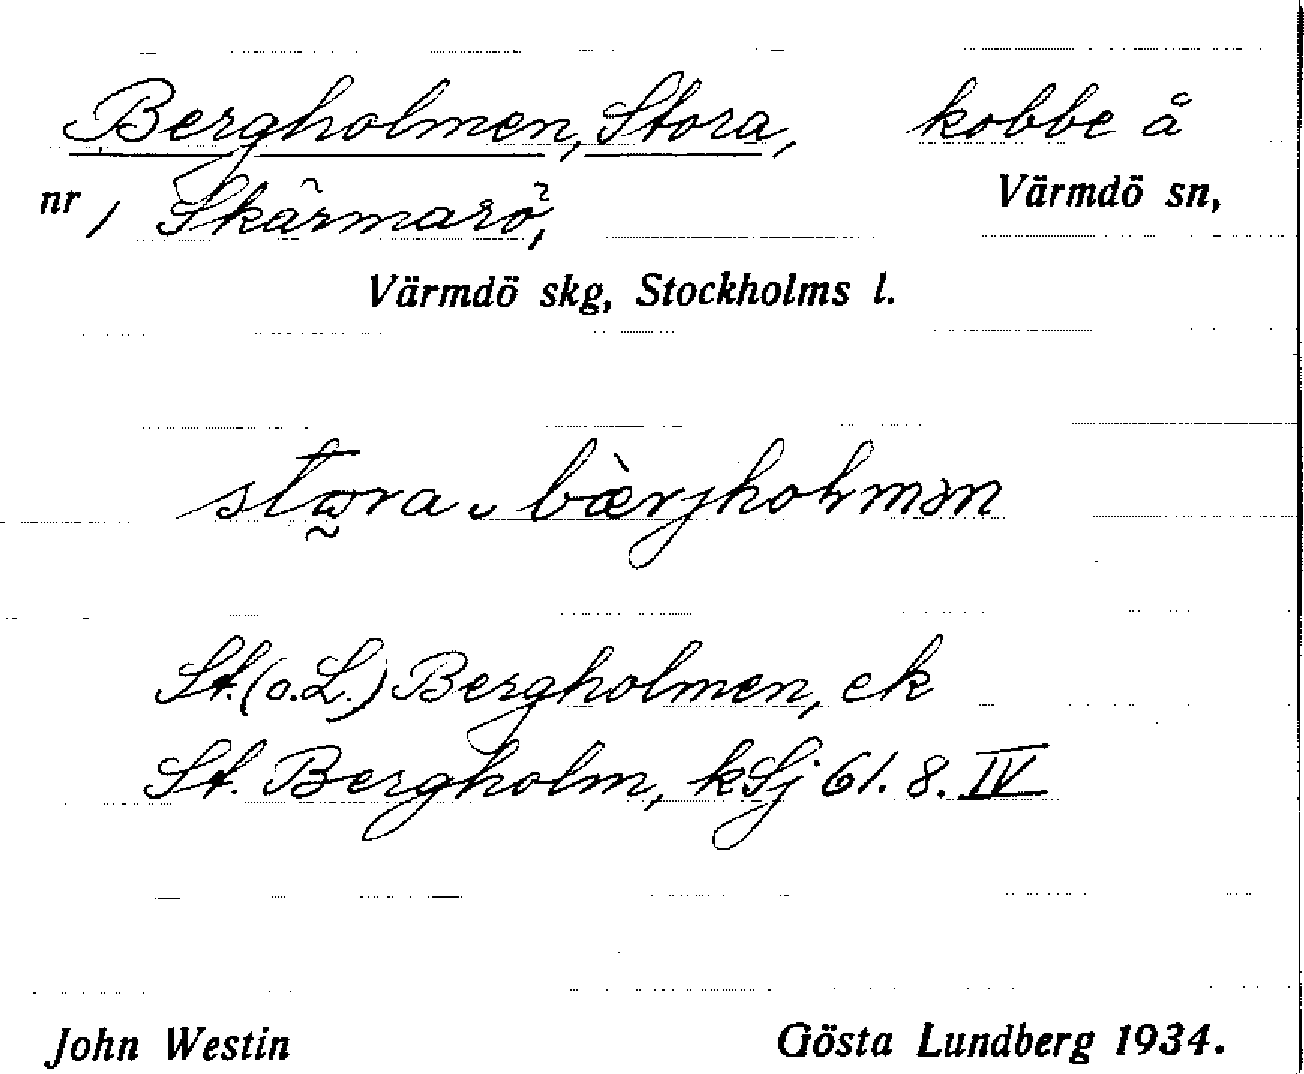 Bergholmen, Stora, kobbe å
nr 1 Skärmarö, Värmdö sn,
Värmdö skg, Stockholms l.
stora ᴗ bærjholmən
St. (o. L.) Bergholmen, ek
St. Bergholm, kSj 61. 8. IV
John Westin Gösta Lundberg 1934.